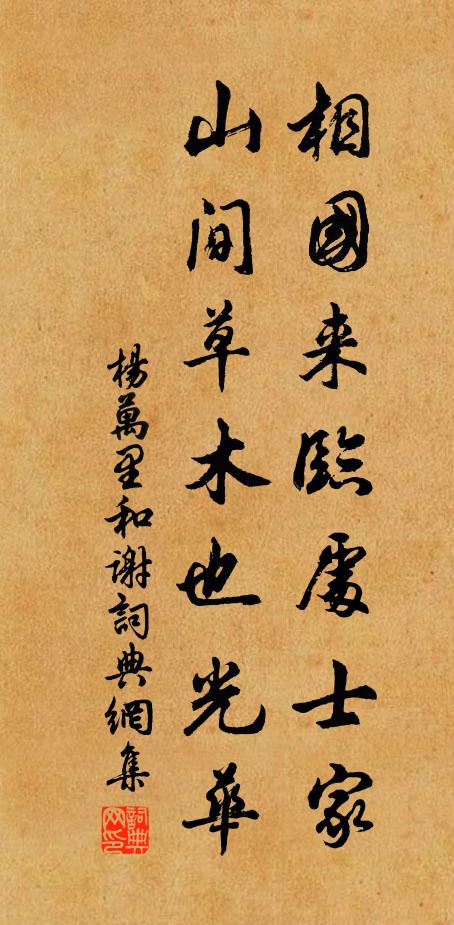 相國来臨處士家
山間草木也光華
楊萬里和谢詞典網集
詞典网印